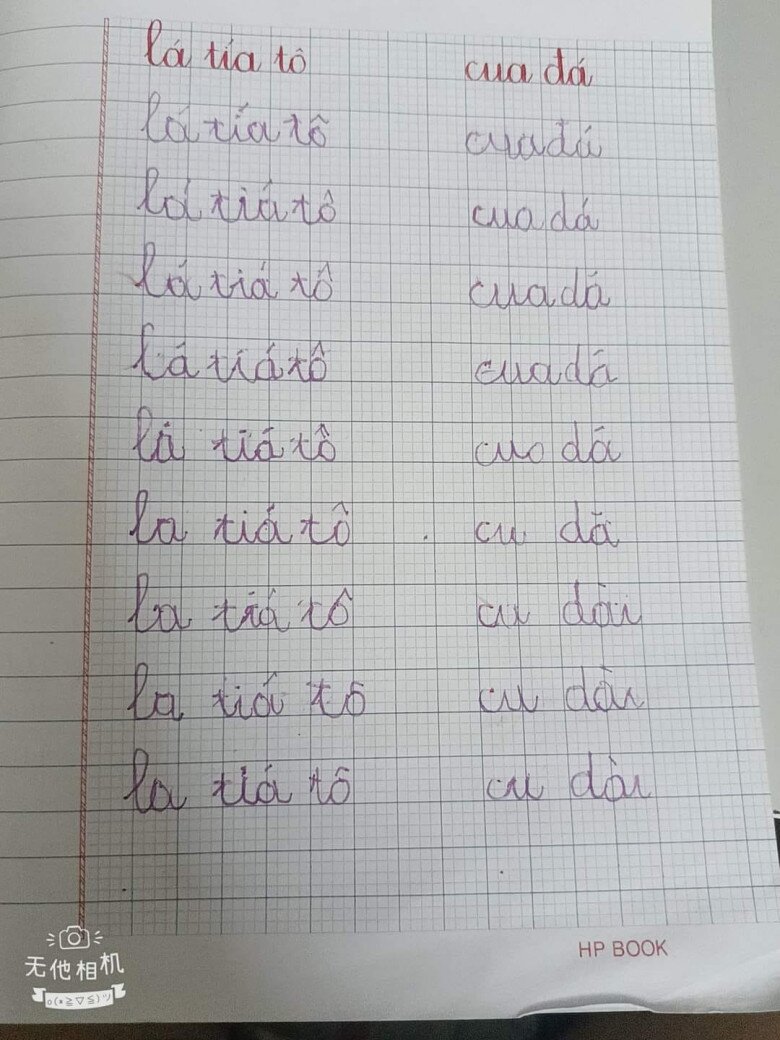 lá tía tô cua đá
lá tía tô cua đá
lá tiá tô cua dá
lá tiá tô cua dá
lá tiá tô cua dá
lá tiá tô cuo dá
la tiá tô cu dã
la tiá tô cu dài
la tiá tô cu dài
la tiá tô cu dài
HP BOOK
无他相机
o(≧▽≦)ツ